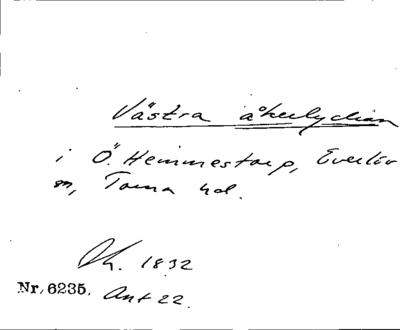 Västra åkerlyckan
i Ö. Hemmestorp, Everlöv
sn, Torna hd.
Lh. 1832
Nr. 6235. Ant 22.